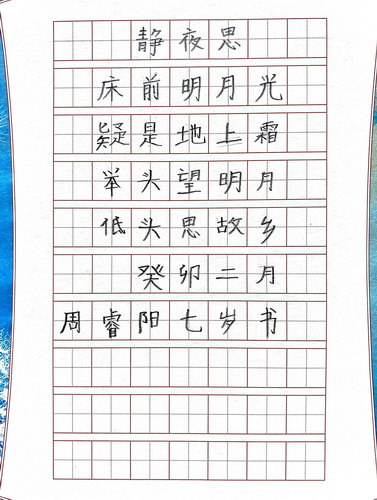 静夜思
床前明月光
疑是地上霜
举头望明月
低头思故乡
癸卯二月
周睿阳七岁书